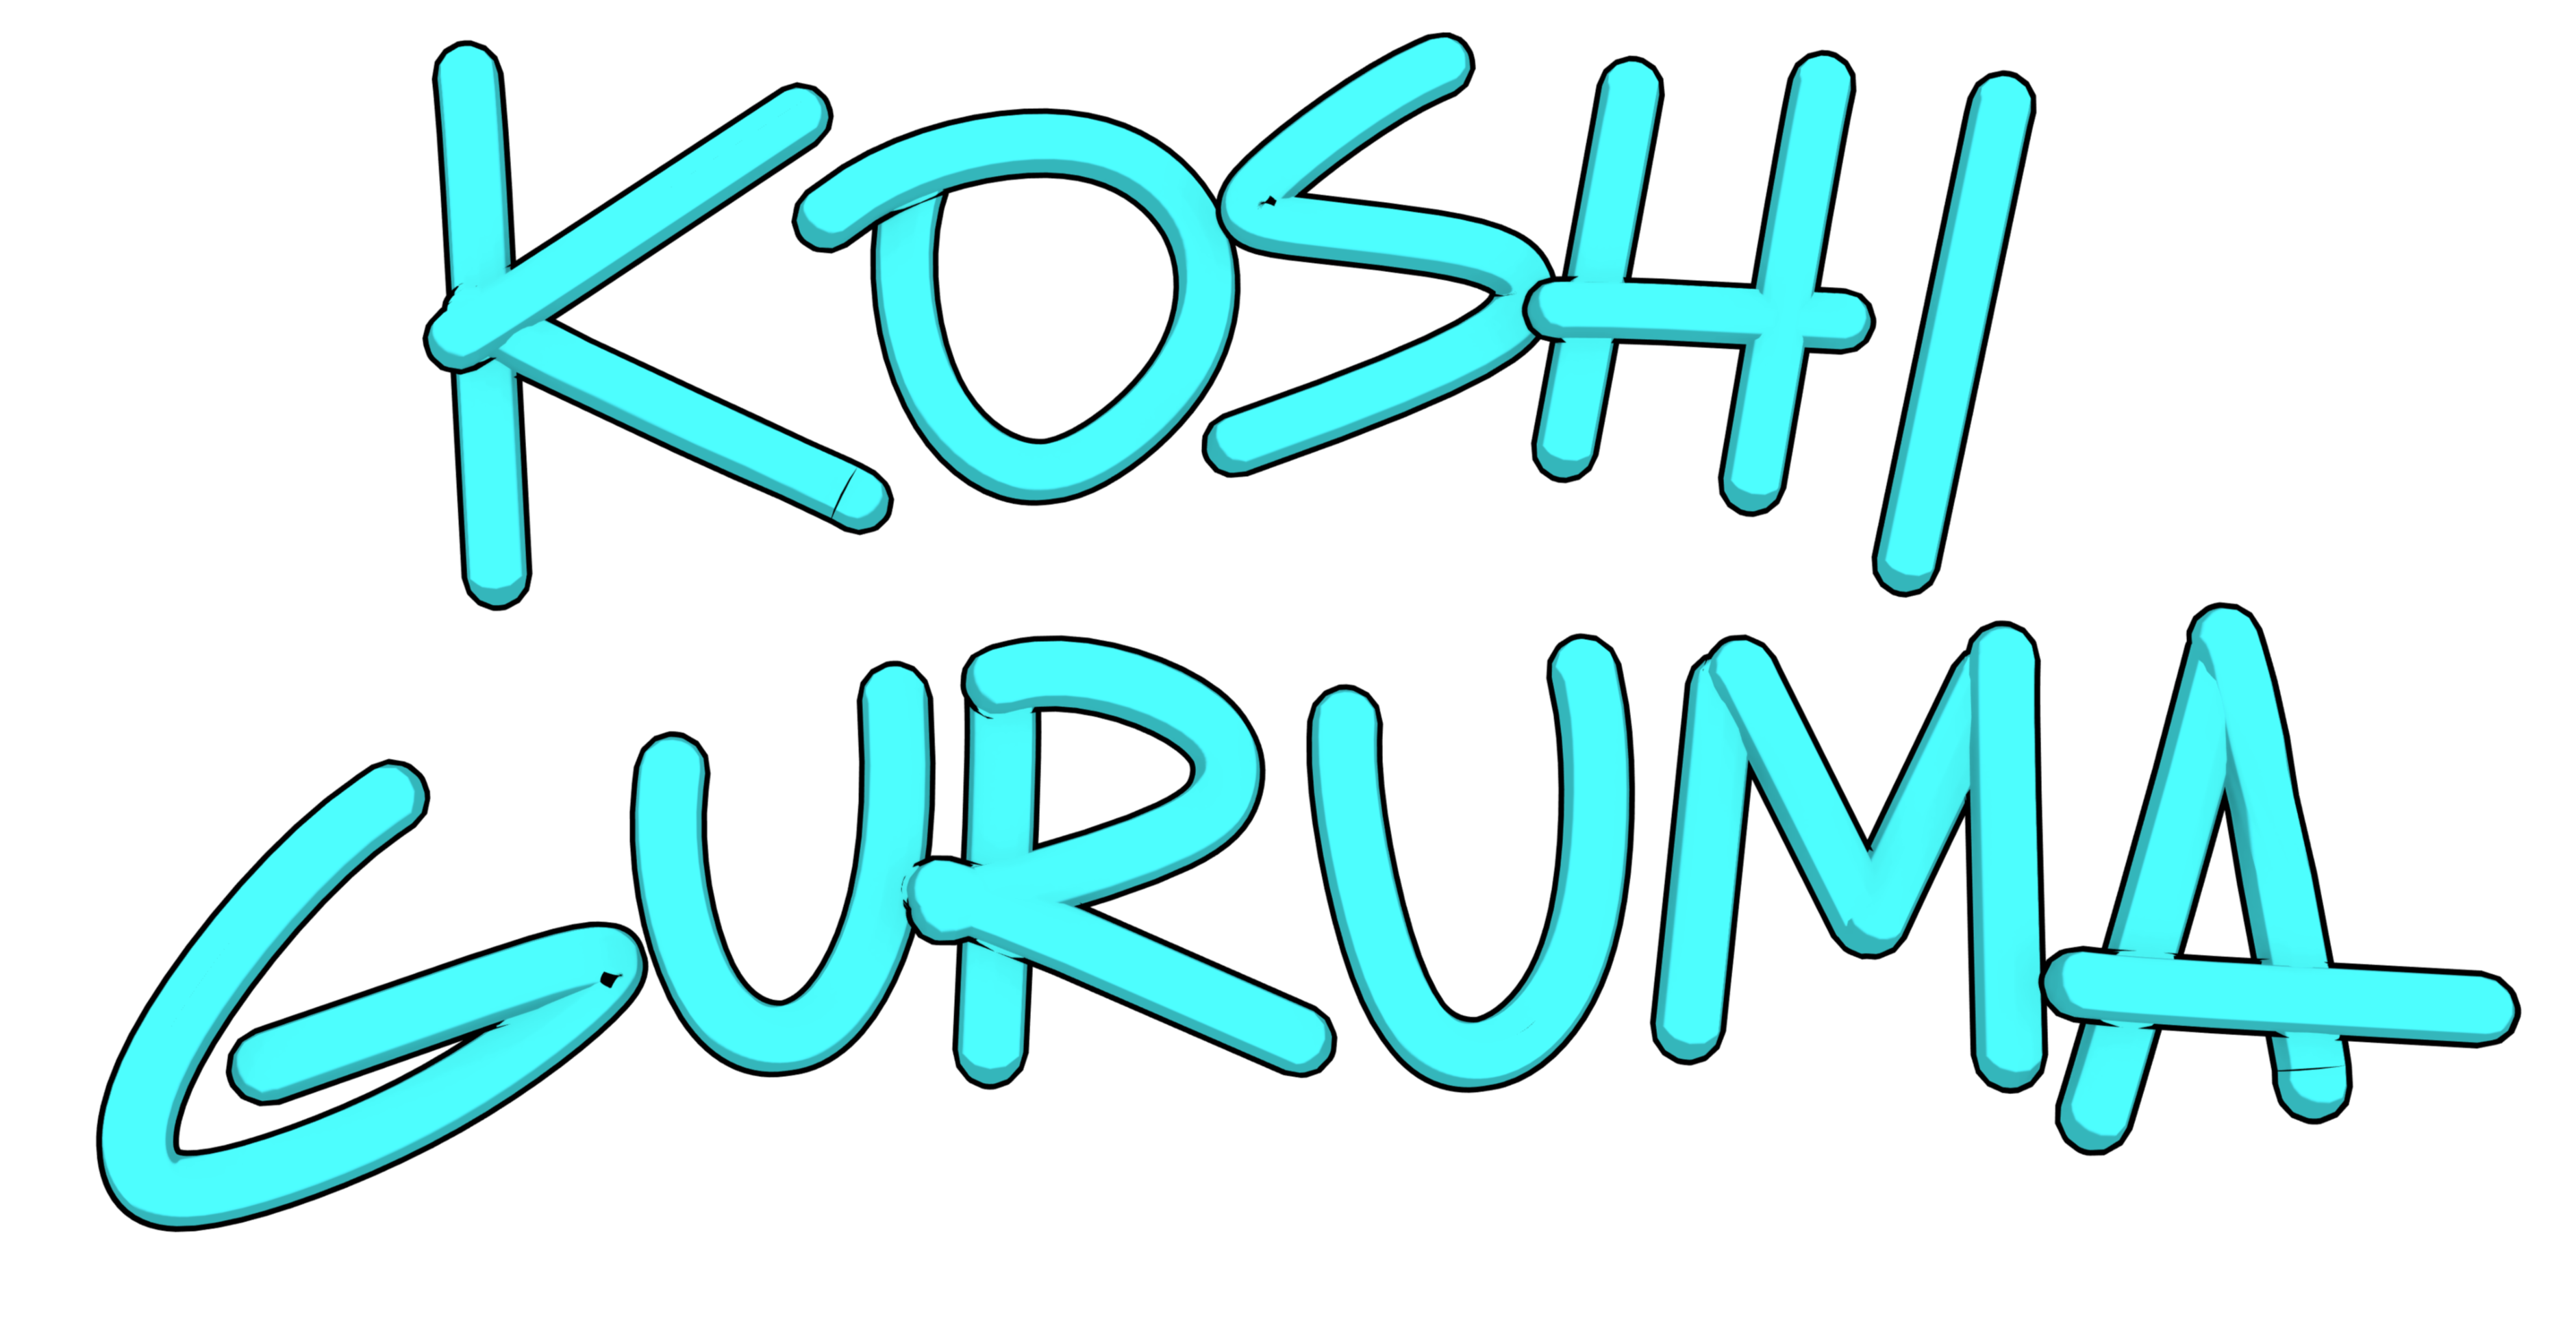 KOSHI
GURUMA